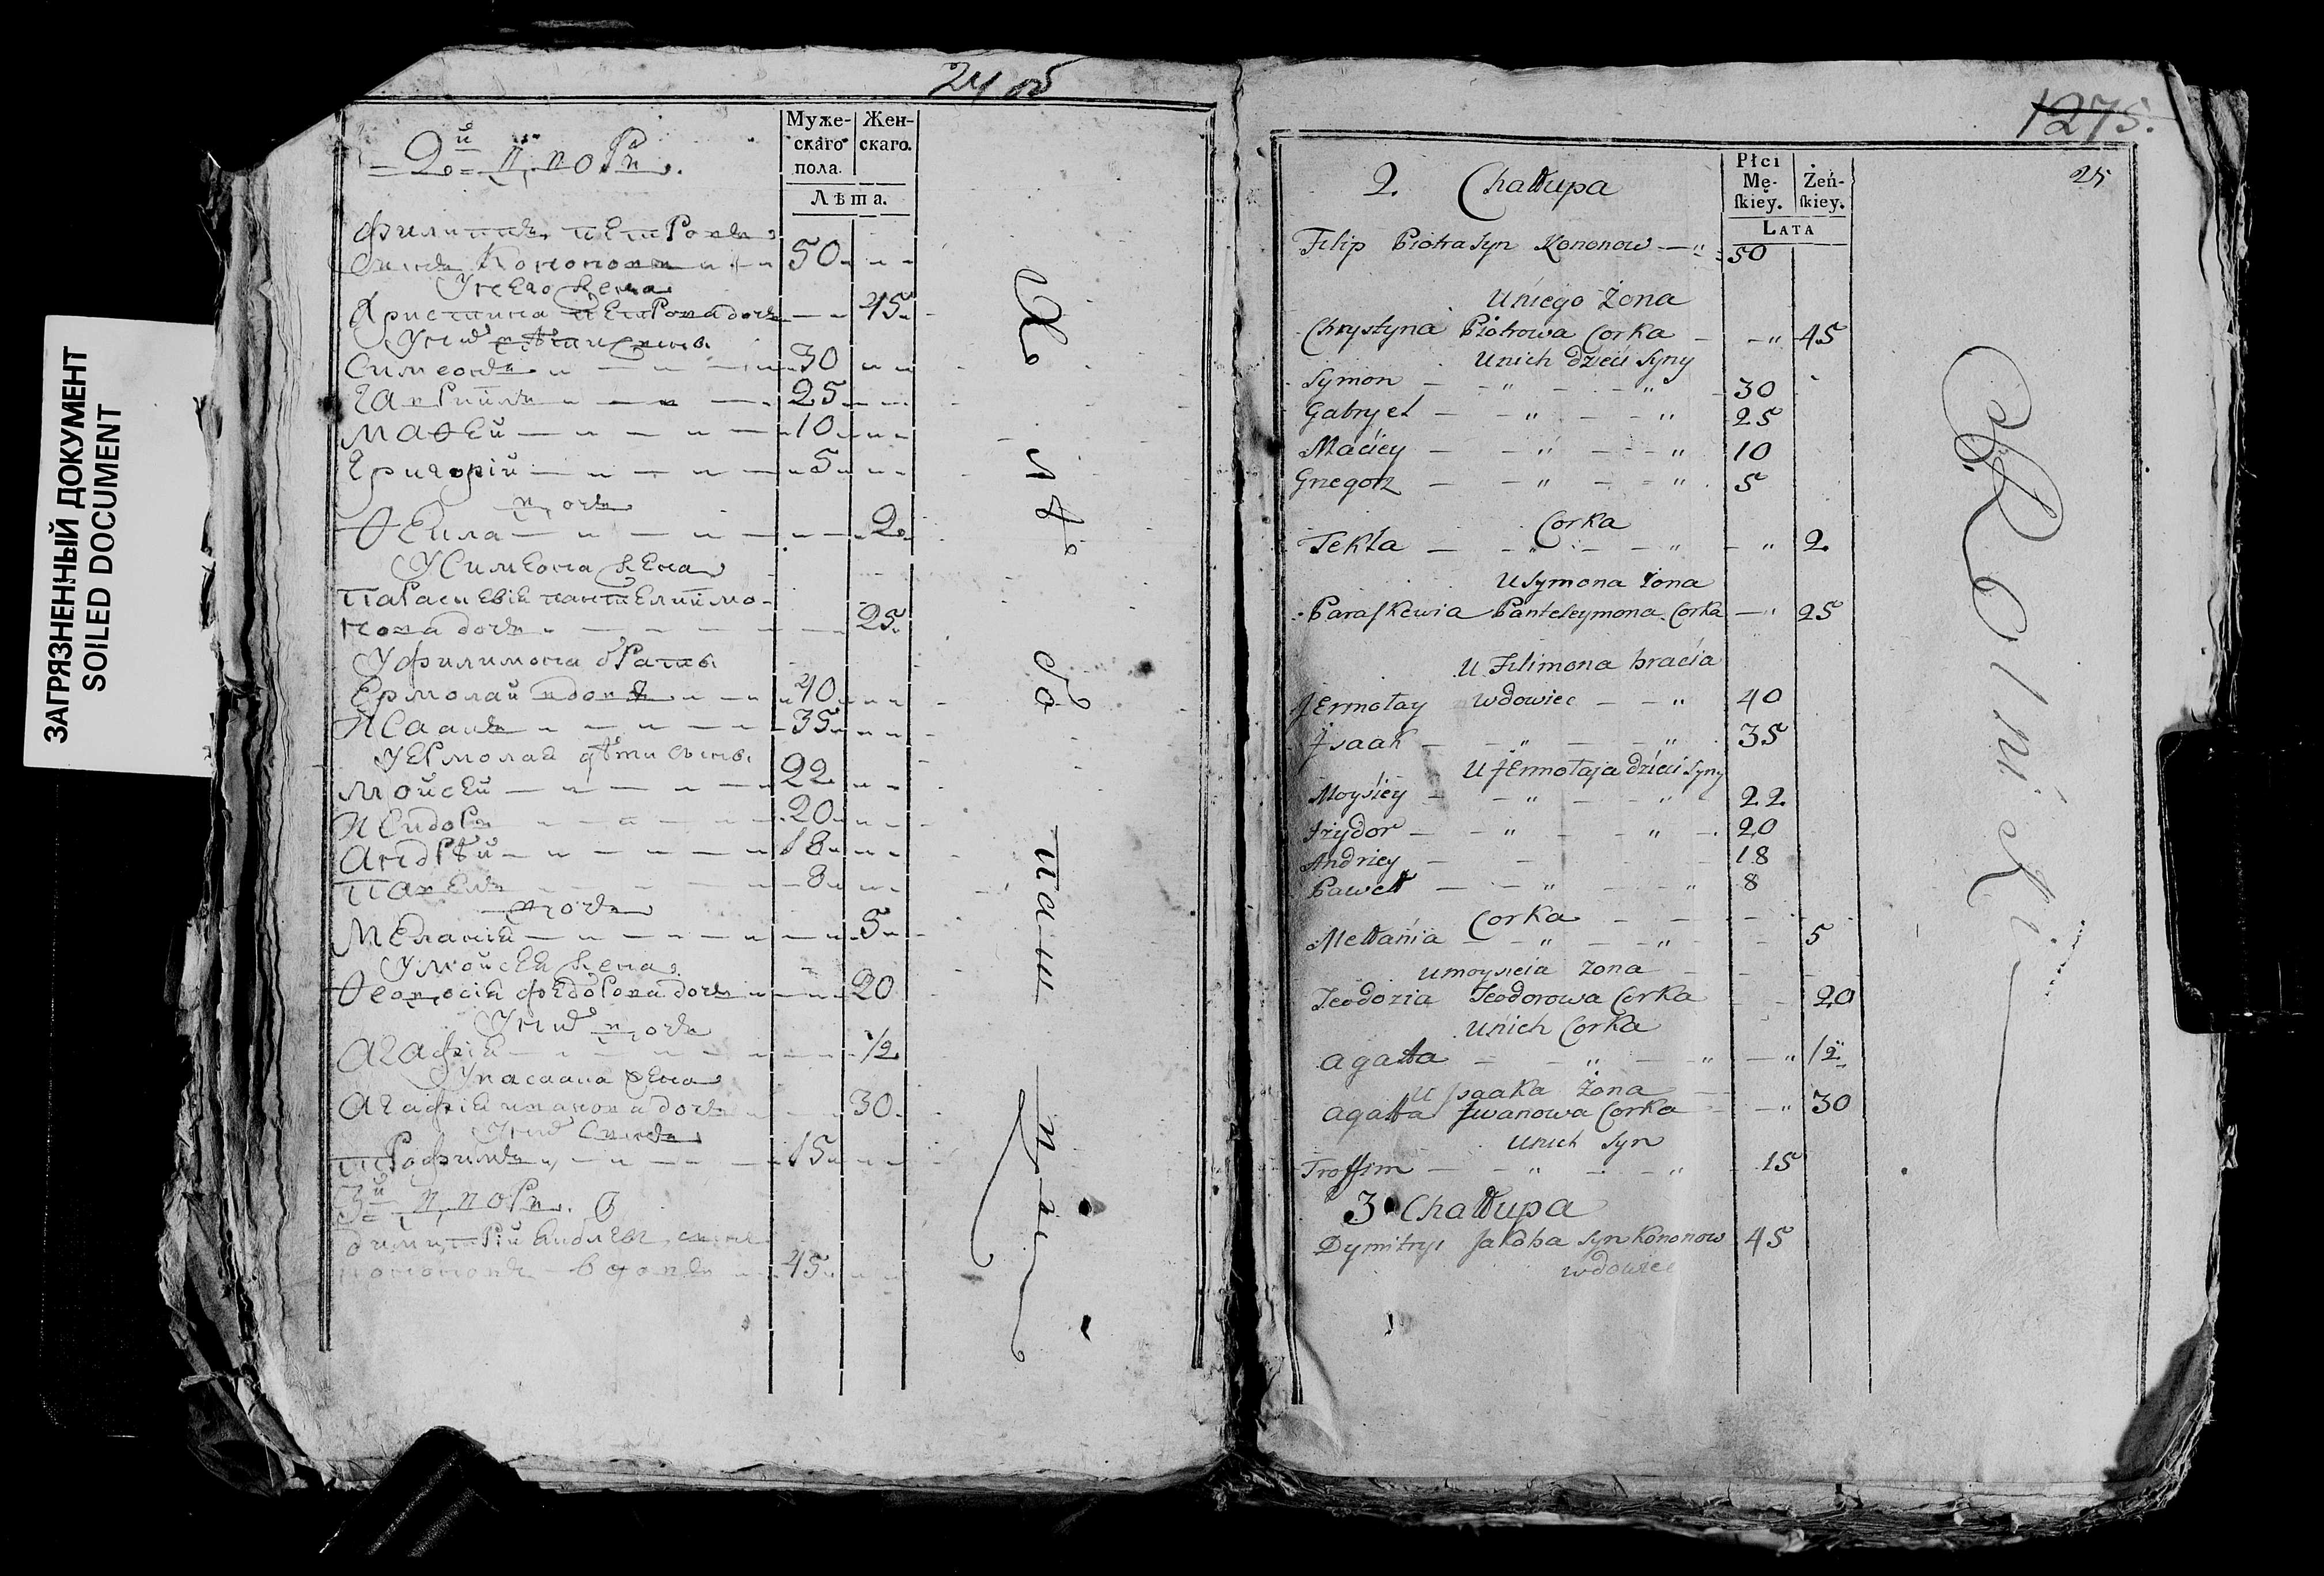 ЗАГРЯЗНЕННЫЙ ДОКУМЕНТ
SOILED DOCUMENT
24 об
Муже-
скаго
пола.
Жен-
скаго.
Лѣта.
2й дворъ.
Филиппъ петровъ
сынъ Кононовъ 50
У него жена
Христина петрова дочь 45
У них дѣти сыны
Симеонъ 30
Гавриилъ 25
Маѳей 10
Григорій 5
дочь
Ѳекла 2
У Симеона жена
Параскевія пантелиймо-
нова дочь 25
У филимона браты
Ермолай вдовъ 40
Исаакъ 35
У Ермолая дѣти сыны
Мойсей 22
Исидоръ 20
Андрѣй 18
Павелъ 8
дочь
Меланія 5
У мойсея жена
Ѳеодосія федорова дочь 20
У них дочь
Агафія 1/2
У исаака жена
Агафія иванова дочь 30
У них сынъ
трофимъ 15
3й дворъ.
димитрій сынъ
кононовъ вдовъ 45
Хлѣбопашцы
1275.
25
Płci
Mę-
ſkiey.
Żeń-
ſkiey.
LATA
2. Chałłupa
Filip Piotra Syn Kononow 50
U niego Żona
Chrystyna Piotrowa Corka 45
U nich dzieci Syny
Symon 30
Gabryel 25
Maciey 10
Grzegorz 5
Corka
Tekla 2
U Symona Żona
Paraſkewia Panteleymona Corka 25
U Filimona bracia
Jermołay wdowiec 40
Jsaak 35
U Jermołaja dzieci Syny
Moysiey 22
Jzydor 20
Andriey 18
Paweł 8
Corka
Mełłania 5
U moysieia Zona
Teodozia Teodorowa Corka 20
U nich Corka
Agatta 1/2
U Jsaaka Żona
Agatta Jwanowa Corka 30
U nich Syn
Troffim 15
3 Chałłupa
Dymitryi Jakoba Syn Kononow 45
wdowiec
Rolniki